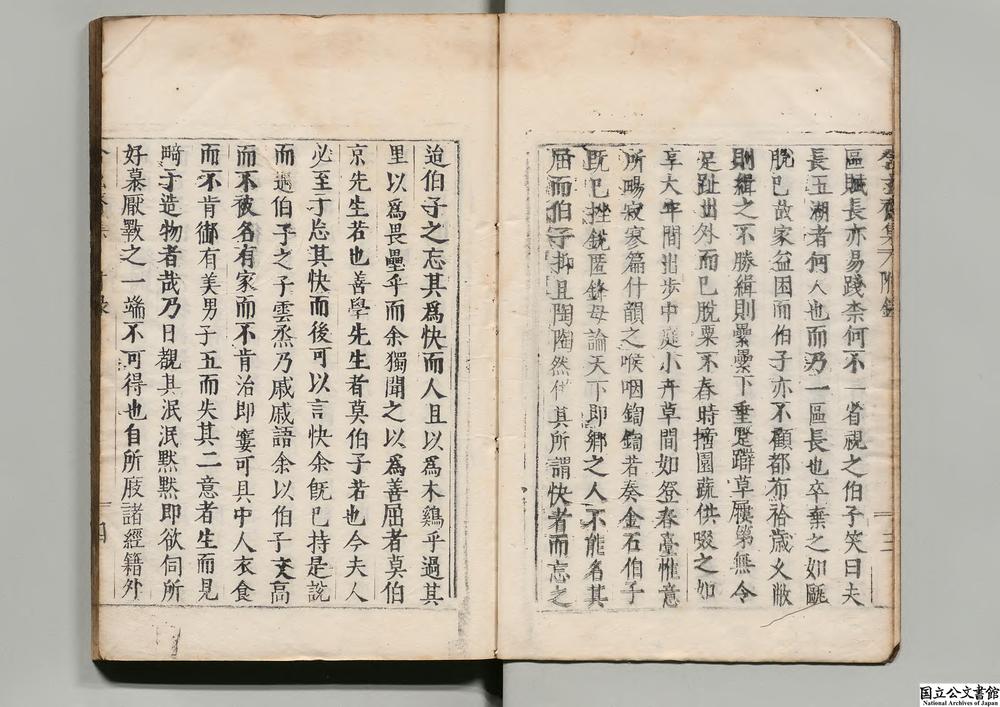 區賦長亦易踐柰何不一省視之伯子笑曰夫
長五湖者何人也而乃一區長也卒棄之如亂
脫巳故家益困而伯子亦不顧都布袷歲乆敝
則緝之不勝緝則纍纍下垂躄躃草屨第無令
足趾出外而巳脫粟不舂時擿園蔬供啜之如
享大牢間出步中庭小卉草間如登春臺惟意
所賜寂寥篇什韻之喉咽鍧鍧若奏金石伯子
既巳挫銳匿鋒毋論天下即鄉之人不能名其
屈而伯子抑且陶陶然其所謂快者而忘之
迨伯子之忘其爲快而人且以爲木鷄乎過其
里以爲畏壘乎而余獨聞之以爲善屈者莫伯
京先生若也善學先生者莫伯子若也今夫人
必至于忘其快而後可以言快余旣巳持是說
而過伯子之子雲烝乃戚戚語余以伯子文高
而不被名有家而不肯治即窶可具中人衣食
而不肯御有美男子五而失其二意者生而見
畸于造物者哉乃日覩其泯泯默默即欲伺所
好慕厭斁之一端不可得也自所庋諸經籍外
集 附錄
三
四
国立公文書館
National Archives of Japan